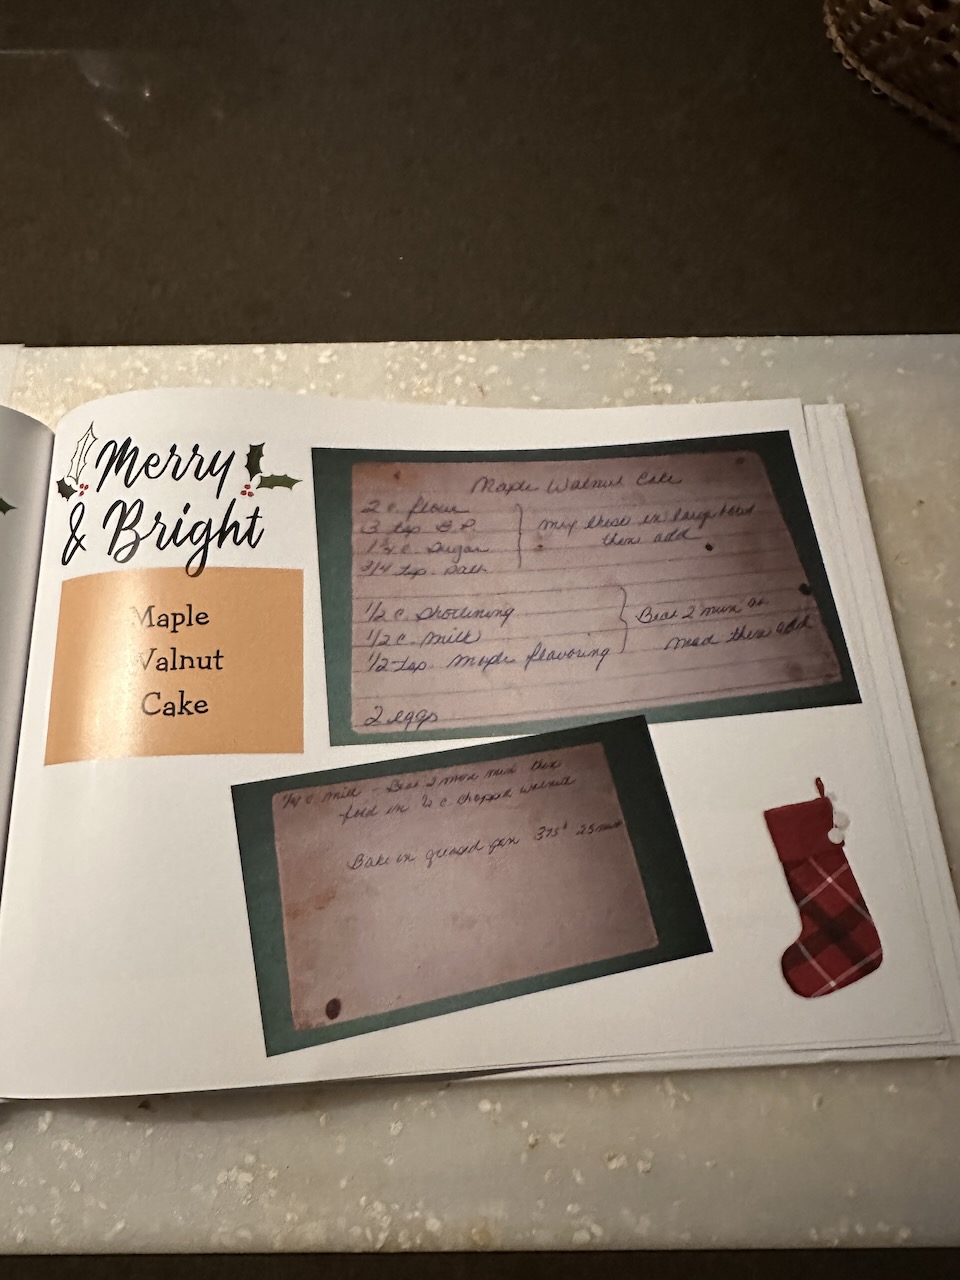 Merry
& Bright
Maple
Walnut
Cake
Maple Walnut Cake
2 c. flour
3 tsp B.P.
1 3/4 c. Sugar
3/4 tsp. Salt
} mix these in large bowl
then add
1/2 c. Shortening
1/2 c. Milk
1/2 tsp. Maple flavoring
} Beat 2 min on
med then add
2 eggs
1/4 c milk - Beat 2 more min then
fold in c. chopped walnuts
Bake in greased pan 375° 25 min